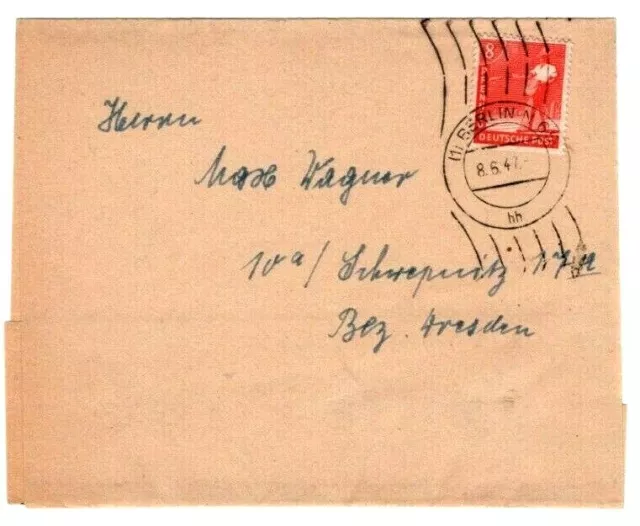 Herrn
Max Wagner
10a/ Schwepnitz
Bez. Dresden
8
DEUTSCHE POST
(1) BERLIN N
8.6.47.
hh